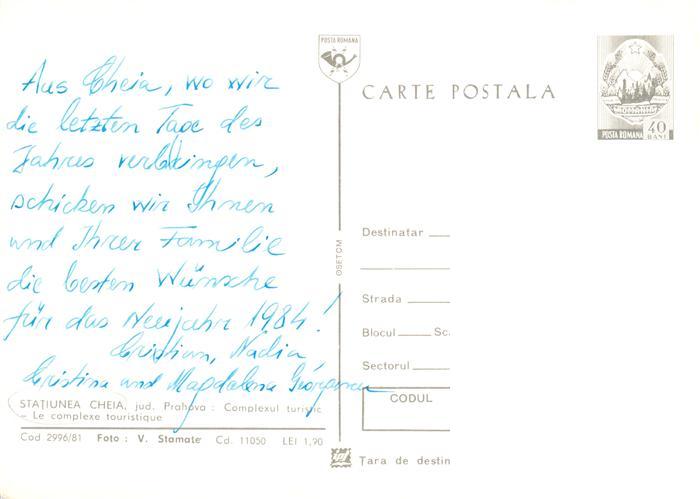 Aus Cheia, wo wir
die letzten Tage des
Jahres verbringen,
schicken wir Ihnen
und Ihrer Familie
die besten Wünsche
für das Neujahr 1984!
Cristian, Nadia
Cristina und Magdalena
STAȚIUNEA CHEIA, jud. Prahova : Complexul turistic
– Le complexe touristique
Cod 2996/81 Foto : V. Stamate Cd. 11050 LEI 1,90
POSTA ROMANA
OSETCM
CARTE POSTALA
POSTA ROMANA 40 BANI
Destinatar
Strada
Blocul Sc.
Sectorul
CODUL
Țara de destin